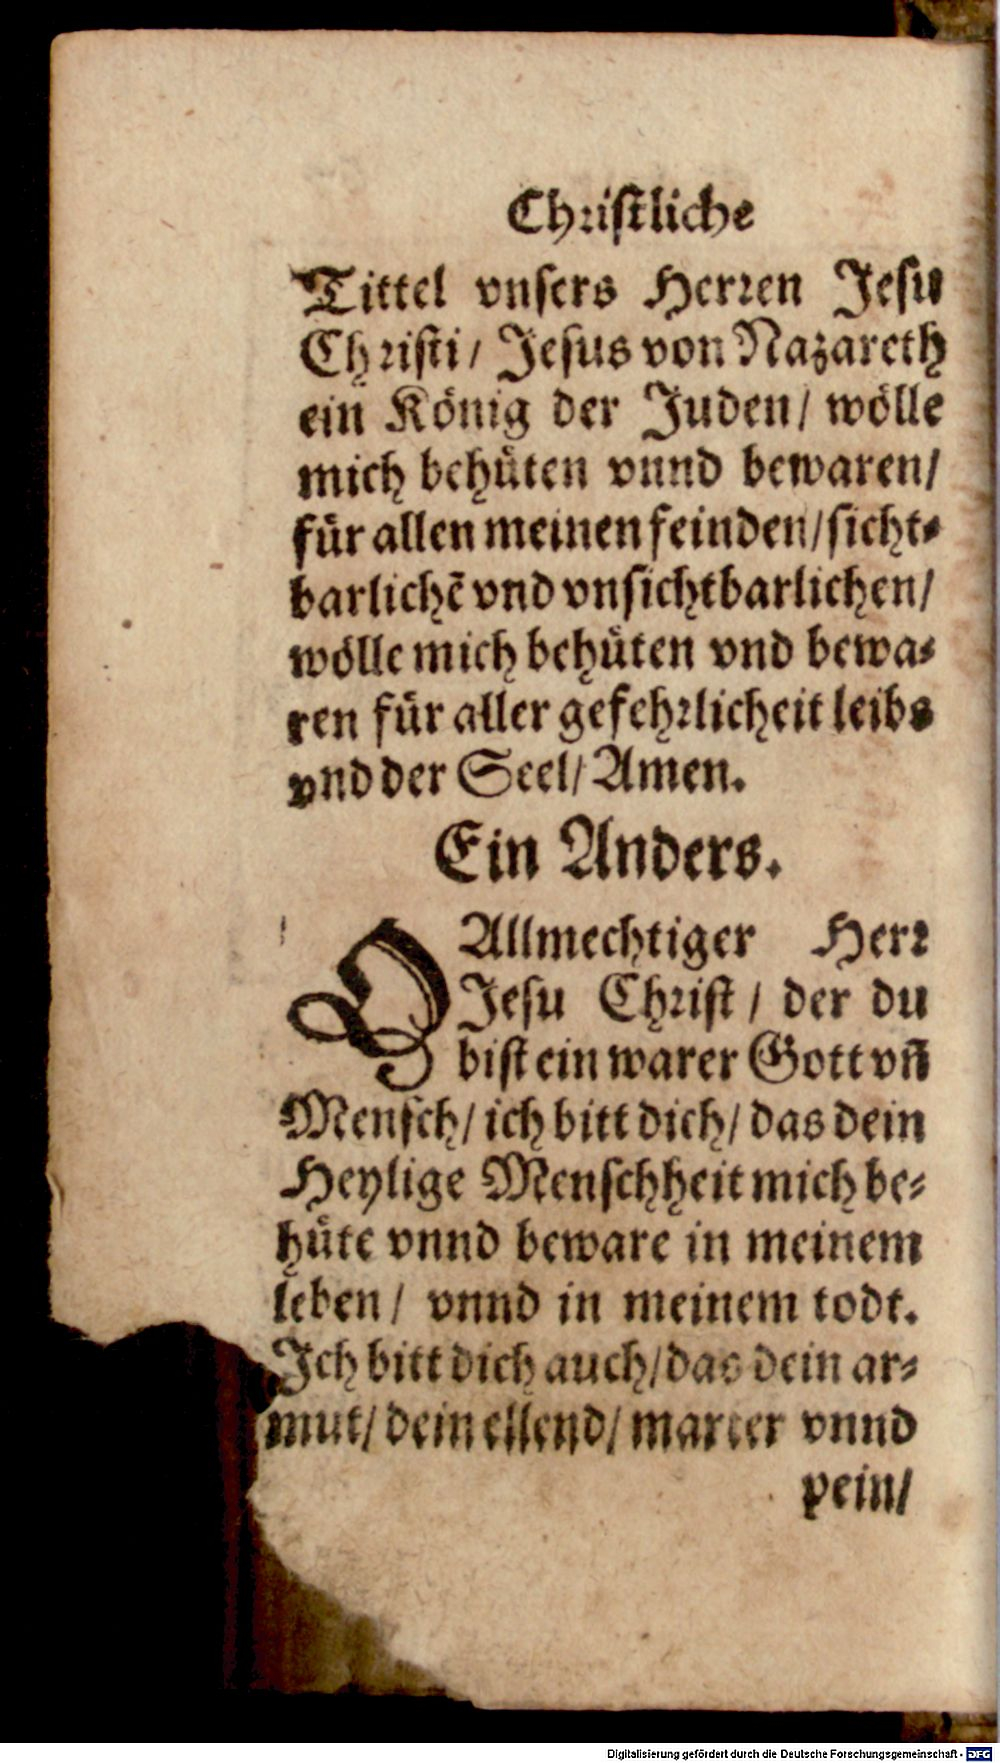 Christliche
Tittel vnsers Herren Jesu
Christi/ Jesus von Nazareth
ein König der Juden/ wölle
mich behüten vnnd bewaren/
für allen meinen feinden/sicht⸗
barlichē vnd vnsichtbarlichen/
wölle mich behüten vnd bewa⸗
ren für aller gefehrlicheit leibs
vnd der Seel/ Amen.
Ein Anders.
O Allmechtiger Herr
Jesu Christ/ der du
bist ein warer Gott vñ
Mensch/ ich bitt dich/ das dein
Heylige Menschheit mich be⸗
hüte vnnd beware in meinem
leben/ vnnd in meinem todt.
Ich bitt dich auch/das dein ar⸗
mut/ dein ellend/ marter vnnd
pein/
Digitalisierung gefördert durch die Deutsche Forschungsgemeinschaft - DFG